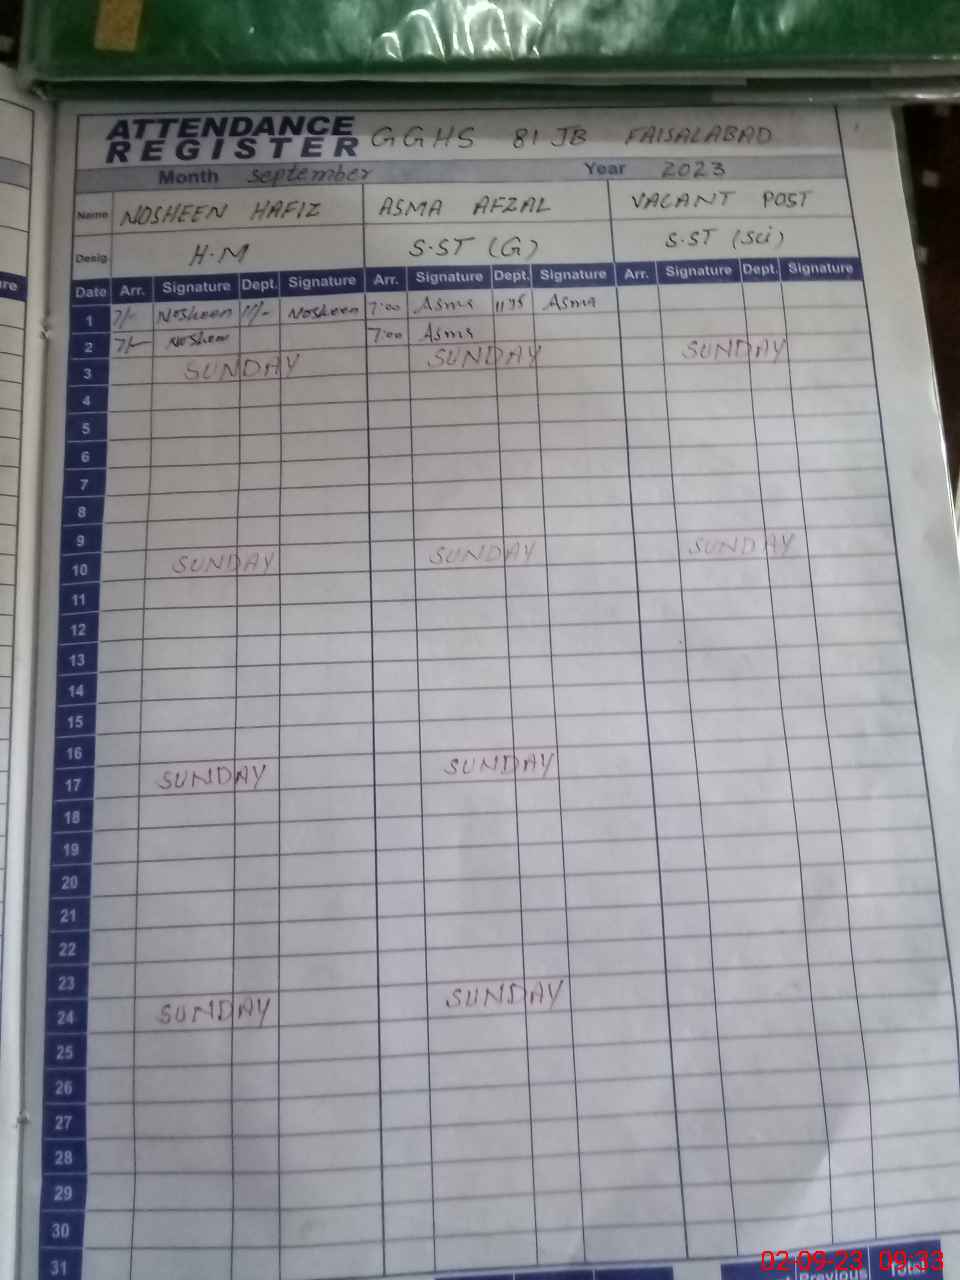 ATTENDANCE REGISTER GGHS 81 JB FAISALABAD
Month September Year 2023
Name NOSHEEN HAFIZ ASMA AFZAL VACANT POST
Desig. H.M S.ST (G) S.ST (Sci)
Date Arr. Signature Dept. Signature Arr. Signature Dept. Signature Arr. Signature Dept. Signature
1 7/- Nosheen 11/- Nosheen 7:00 Asma Asma
2 7/- 7:00 Asma
3 SUNDAY SUNDAY SUNDAY
4
5
6
7
8
9
10 SUNDAY SUNDAY SUNDAY
11
12
13
14
15
16
17 SUNDAY SUNDAY
18
19
20
21
22
23
24 SUNDAY SUNDAY
25
26
27
28
29
30
31
Previous Total
02-09-23 09:33